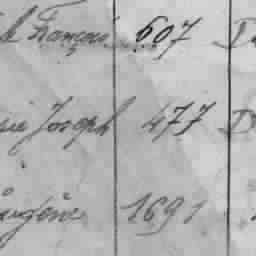 François 607
Joseph 477 D
Eugène 1691